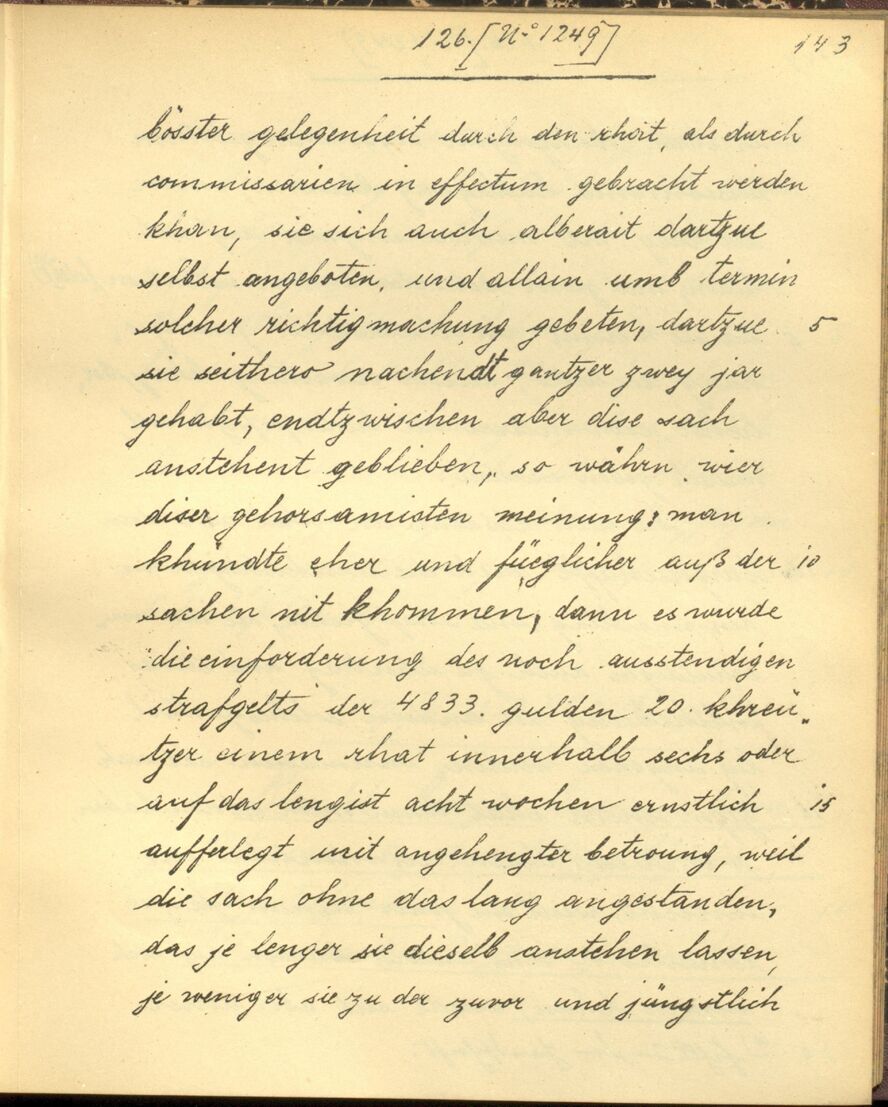 126. [N° 1249]
143
bösster gelegenheit durch den rhat, als durch
commissarien in effectum gebracht werden
khan, sie sich auch alberait dartzue
selbst angeboten, und allain umb termin
solcher richtigmachung gebeten, dartzue 5
sie seithero nachendt gantzer zwey jar
gehabt, endtzwischen aber dise sach
anstehent geblieben, so währn wier
diser gehorsamisten meinung: man
khündte eher und füeglicher auß der 10
sachen nit khommen, dann es wurde
die einforderung des noch ausstendigen
strafgelts der 4833. gulden 20. khreü„
tzer einem rhat innerhalb sechs oder
auf das lengist acht wochen ernstlich 15
aufferlegt mit angehengter betroung, weil
die sach ohne das lang angestanden,
das je lenger sie dieselb anstehen lassen,
je weniger sie zu der zuvor und jüngstlich